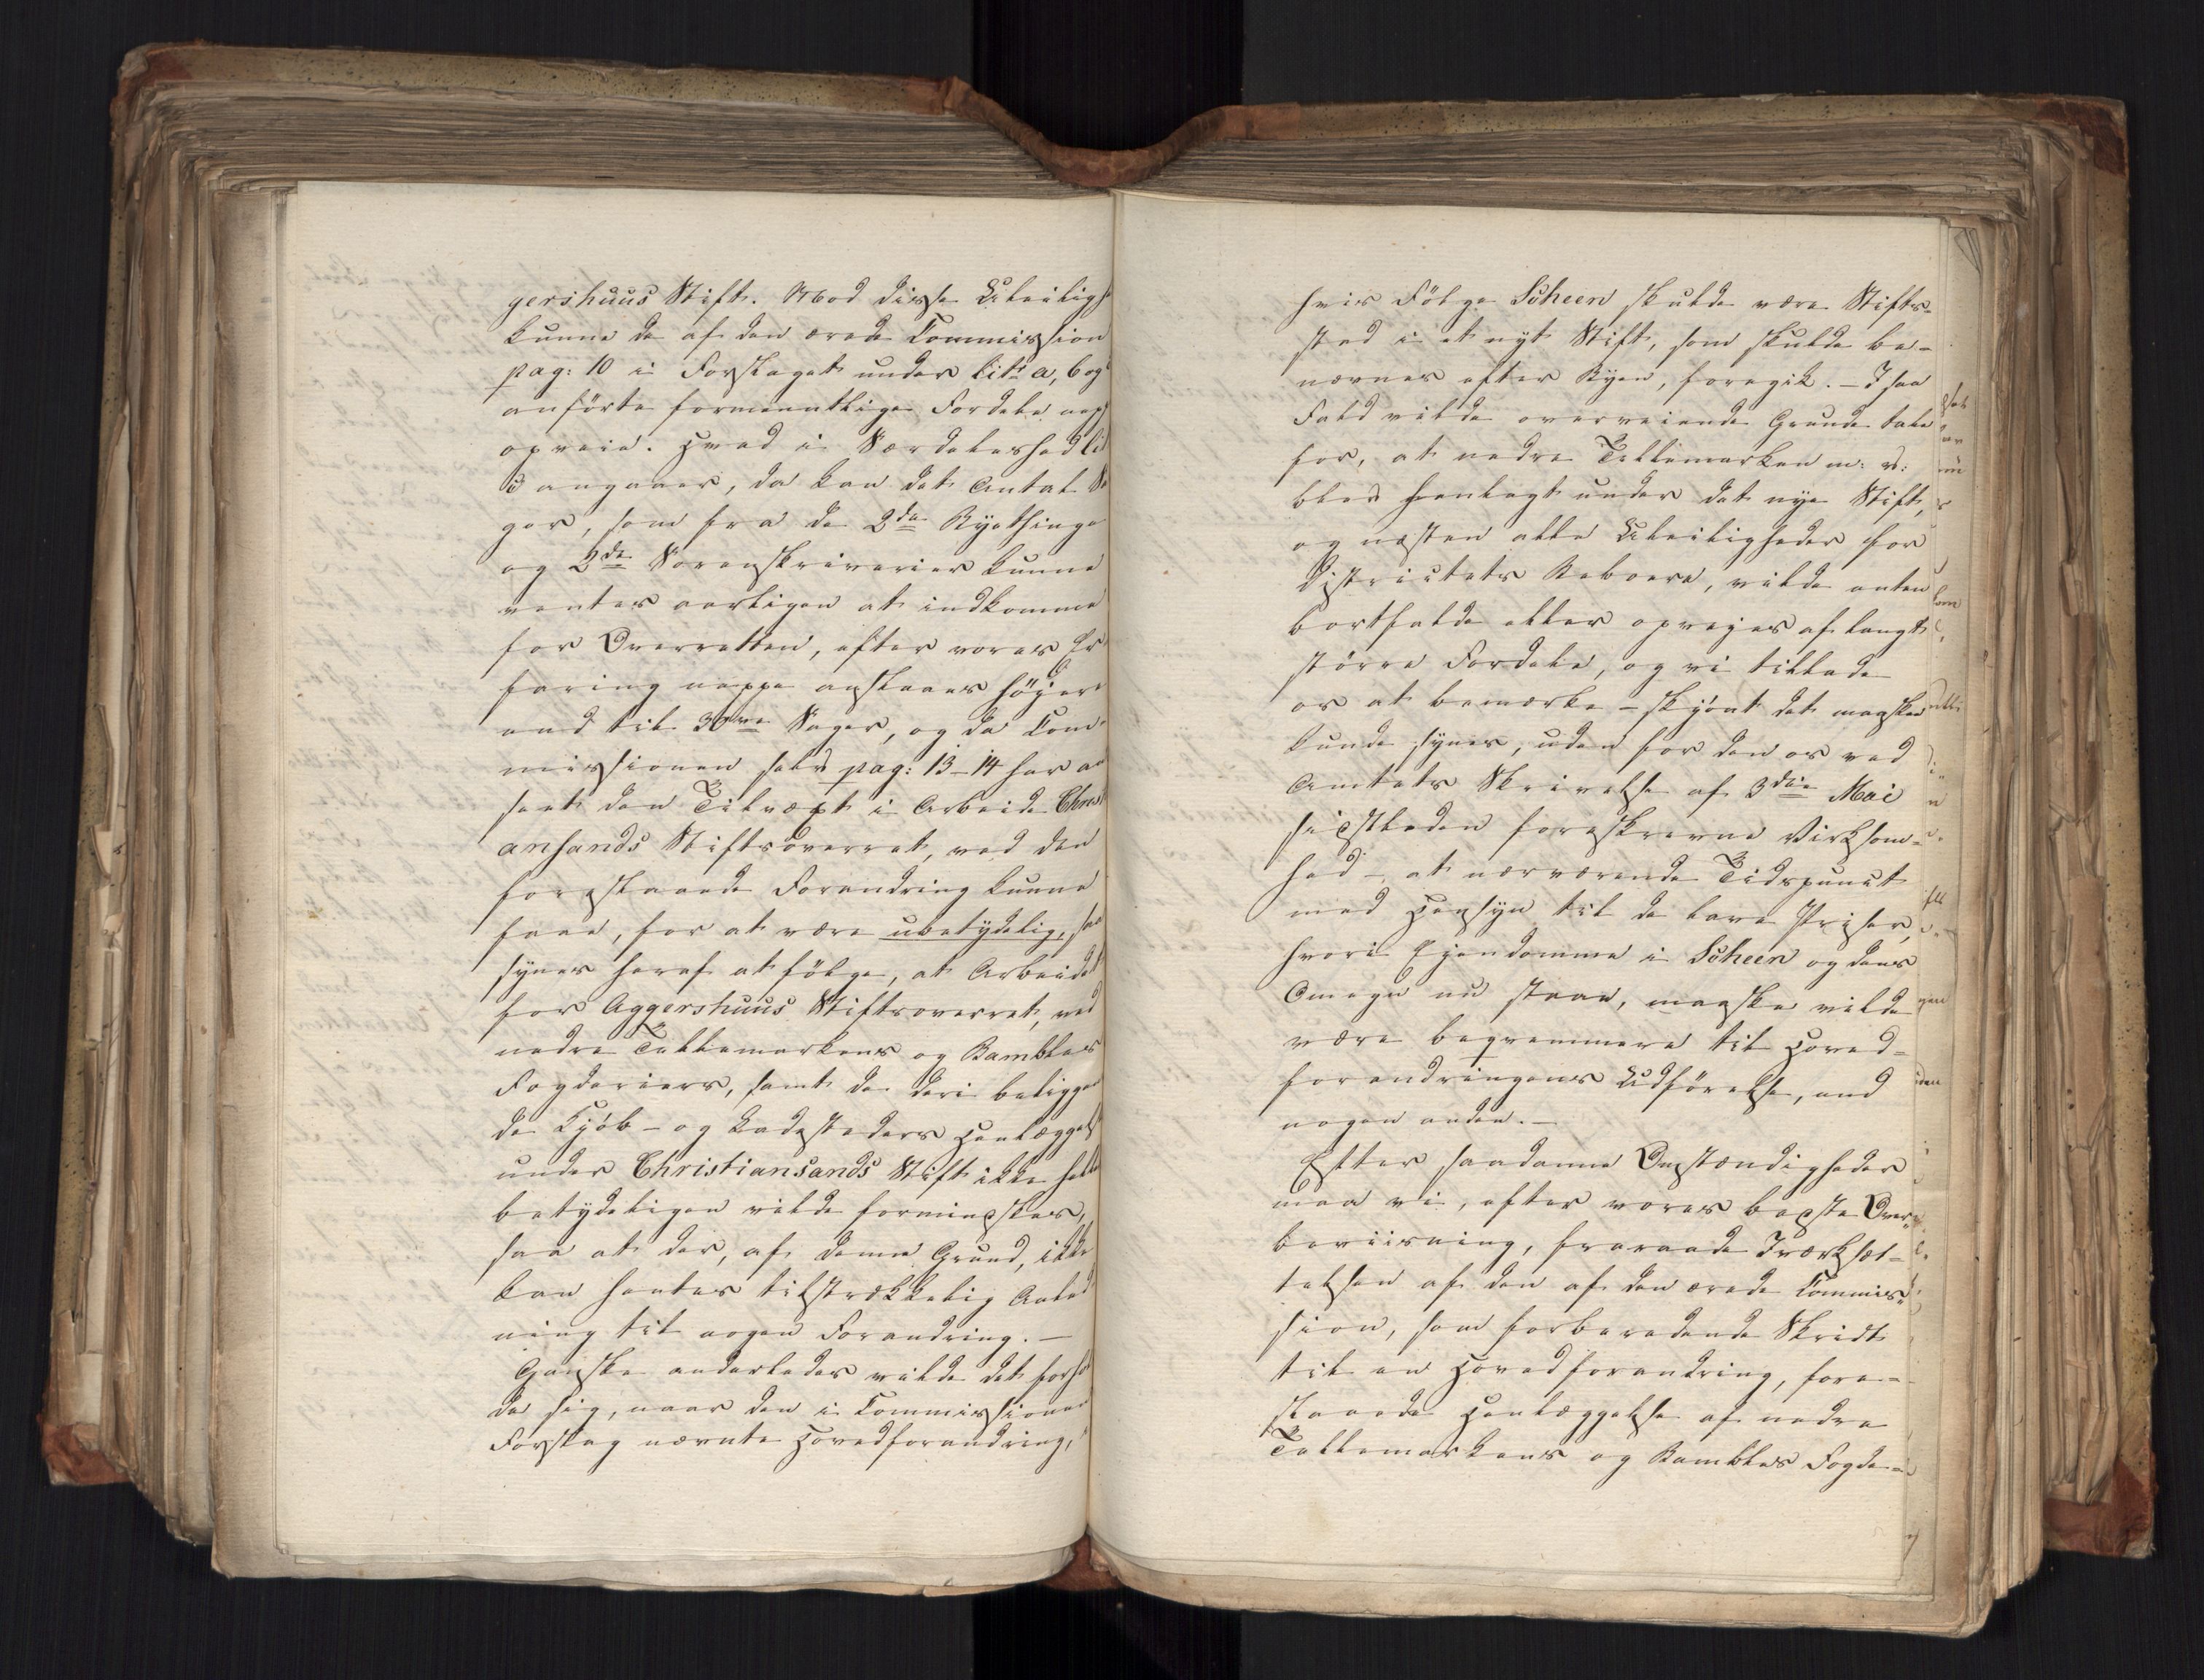 gershuus Stift. Mod disse Uleiligh
kunne de af den ærede Commission
pag: 10 i Forslaget under litr a, b og
anførte formeentlige Fordele nep
opveie. Hvad i Særdeleshed li
c angaaer, da kan det Antal Sa
ger, som fra de 2de Byethinge
og 2de Sorenskriverier kunne
ventes aarligen at indkomme
for Overretten, efter vores Er
faring neppe anslaaes høyere
end til 30ve Sager, og da Com
missionen selv pag: 13-14 har an
seet den Tilvæxt i Arbeide Christi
ansands Stiftsoverret, ved den
foreslaaede Forandring kunne
faae, for at være ubetydelig, saa
synes heraf at følge, at Arbeidet
for Aggershuus Stiftsoverret, ved
nedre Tellemarkens og Bambles
Fogderiers, samt de deri beliggen
de Kjøb- og Ladesteders Henlæggelse
under Christiansands Stift ikke hel
betydeligen vilde formindskes,
saa at der, af denne Grund, ikke
kan hentes tilstrækkelig Anled
ning til nogen Forandring. —
Ganske anderledes vilde det forhol
de sig, naar den i Commissionens
Forslag nævnte Hovedforandring,
hvis Følge Scheen skulde være Stifts-
sted i et nyt Stift, som skulde be-
nævnes efter Byen, foregik. — I saa
Fald vilde overveiende Grunde tale
for, at nedre Tellemarken m: v:
blev henlagt under det nye Stift,
og næsten alle Uleiligheder for
Districtets Beboere, vilde enten
bortfalde eller opvejes af langt
større Fordele, og vi tillade
os at bemærke - skjønt det maaskee
kunde synes, uden for den os ved
Amtets Skrivelse af 3die Mai
sidstleden foreskrevne Virksom-
hed - at nærværende Tidspunct
med Hensyn til de lave Priser,
hvori Ejendomme i Scheen og dens
Omegn nu staae, maaske vilde
være beqvemmere til Hoved-
forandringens Udførelse, end
nogen anden. —
Efter saadanne Omstændigheder
maa vi, efter vores bedste Over-
beviisning, fraraade Iværksæt-
telsen af den af den ærede Commis-
sion, som forberedende Skridt
til en Hovedforandring, fore-
slaaede Henlæggelse af nedre
Tellemarkens og Bambles Fogde-